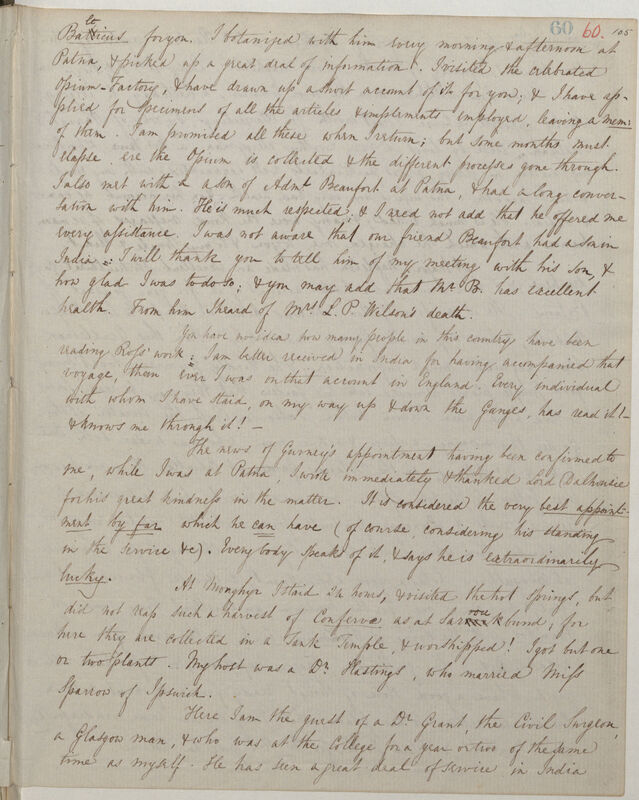 60 60. 105
Batticus for you. I botanized with him every morning & afternoon at
Patna, & picked up a great deal of information. I visited the celebrated
Opium-Factory, & have drawn up a short account of it for you; & I have ap-
plied for specimens of all the articles & implements employed, leaving a mem:
of them. I am promised all these when I return; but some months must
elapse, ere the Opium is collected & the different processes gone through.
I also met with a son of Adm.l Beaufort at Patna, & had a long conver-
sation with him. He is much respected; & I need not add that he offered me
every assistance. I was not aware that our friend Beaufort had a son in
India: I will thank you to tell him of my meeting with his son, &
how glad I was to do so; & you may add that Mr. B. has excellent
health. From him I heard of Mrs. L. P. Wilson's death.
You have no idea how many people in this country have been
reading Ross' work: I am better received in India for having accompanied that
voyage, then ever I was on that account in England. Every individual
with whom I have staid, on my way up & down the Ganges, has read it!-
& knows me through it! —
The news of Gurney's appointment having been confirmed to
me, while I was at Patna, I wrote immediately & thanked Lord Dalhousie
for his great kindness in the matter. It is considered the very best appoint-
ment by far which he can have (of course, considering his standing
in the service &c). Everybody speaks of it, & says he is extraordinarily
lucky.
At Monghyr I staid 24 hours, & visited the hot springs, but
did not reap such a harvest of Confervæ as at Sorookkund; for
here they are collected in a Tank Temple, & worshipped! I got but one
or two plants. My host was a Dr. Hastings, who married Miss
Sparrow of Ipswich.
Here I am the guest of a Dr. Grant, the Civil Surgeon,
a Glasgow man, & who was at the College for a year or two of the same
time as myself. He has seen a great deal of service in India